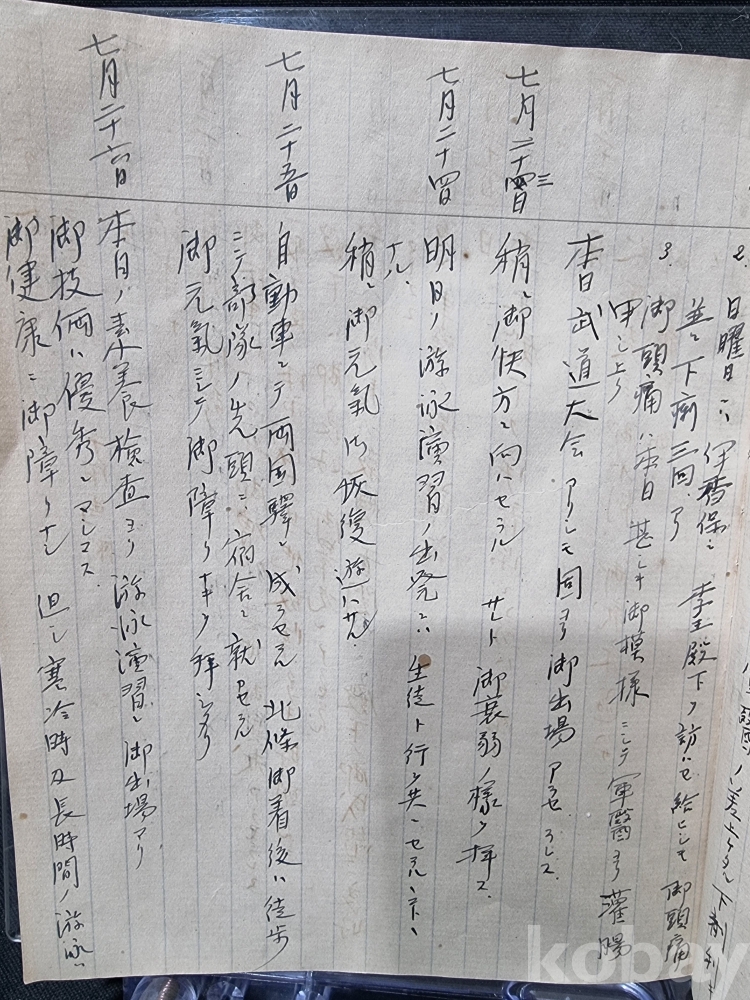 2. 日曜日ハ伊香保ニ李王殿下ヲ訪ハセ給ヒシモ御頭痛
並ニ下痢三回アリ
3. 御頭痛ハ本日甚シキ御模様ニシテ軍醫ヨリ灌腸
申シ上ク
七月二十三日
本日武道大会アリシモ固ヨリ御出場アラセラレス
稍々御快方ニ向ハセラル サレト御衰弱ノ様ヲ拝ス
七月二十四
明日ノ游泳演習ノ出発ニハ生徒ト行ヲ共ニセラル
ナル、
稍々御元気ヲ恢復遊ハサル
七月二十五日
自動車ニテ両国驛ニ成ラセラル 北條御着後ハ徒歩
ニテ部隊ノ先頭ニ宿舎ニ就カセラル
御元氣ニシテ御障リ
七月二十六日
本日ノ素養檢査ヨリ游泳演習ニ御出場アリ
御技倆ハ優秀ニマシマス
御健康ニ御障リナシ 但シ寒冷時及長時間ノ游泳ハ
kobay